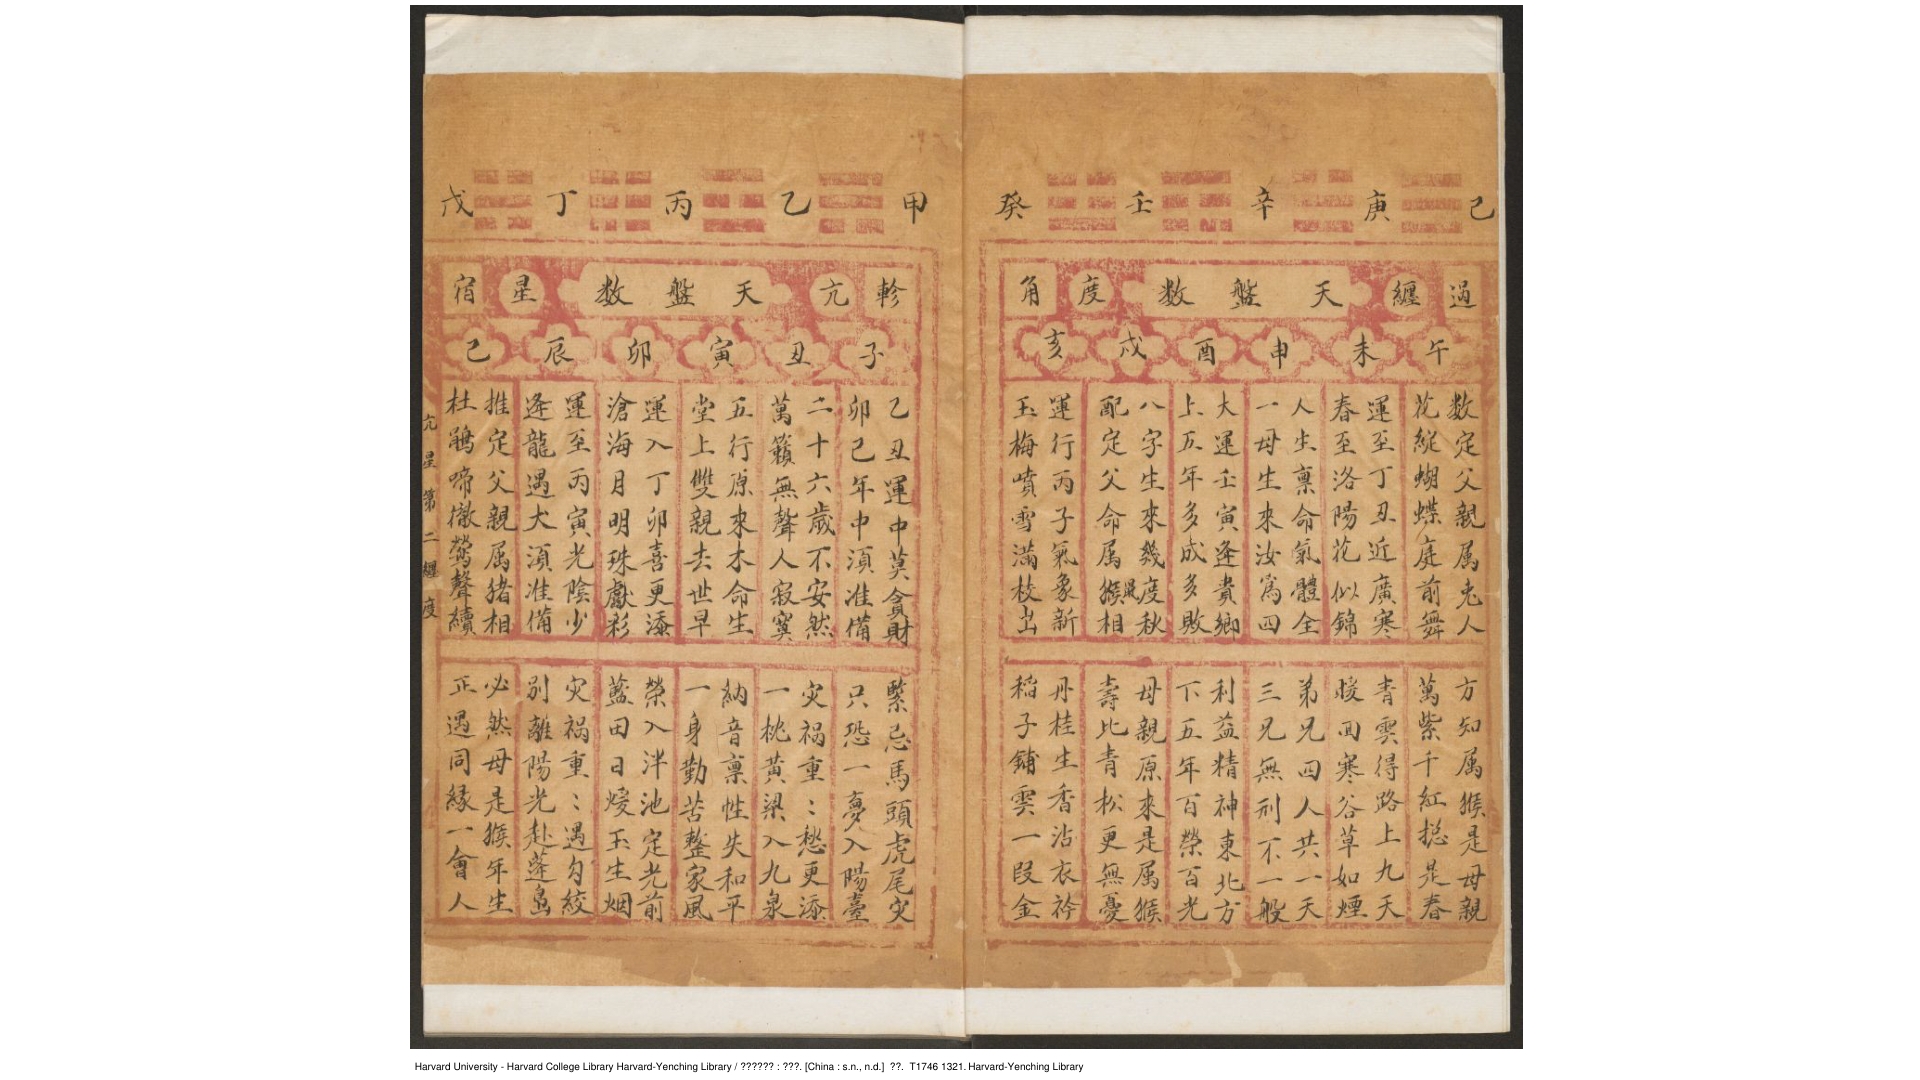 己 庚 辛 壬 癸
過 纏 天盤数 度 角
午 未 申 酉 戌 亥
数定父親属兎人 方知属猴是母親
花綻蝴蝶庭前舞 萬紫千紅捴是春
運至丁丑近廣寒 青雲得路上九天
春至洛陽花似錦 暖回寒谷草如煙
人生禀命氣體全 弟兄四人共一天
一母生來汝為四 三兄無刑不一般
大運壬寅逢貴鄉 利益精神東北方
上五年多成多敗 下五年百榮百光
八字生來幾度秋 母親原來是属猴
配定父命属猴相 壽比青松更無憂
鼠
運行丙子氣象新 丹桂生香沾衣衿
玉梅噴雪滿枝出 稻子鋪雲一段金
甲 乙 丙 丁 戊
軫 亢 天盤数 星 宿
子 丑 寅 卯 辰 巳
乙丑運中莫貪財 緊忌馬頭虎尾灾
卯己年中須准備 只恐一夢入陽臺
二十六歲不安然 灾禍重〻愁更添
萬籟無聲人寂寞 一枕黃梁入九泉
五行原來木命生 納音禀性失和平
堂上雙親去世早 一身勤苦整家風
運入丁卯喜更添 榮入泮池定光前
滄海月明珠獻彩 藍田日煖玉生烟
運至丙寅光陰少 灾禍重〻遇勾絞
逢龍遇犬須准備 別離陽光赴蓬島
推定父親属猪相 必然母是猴年生
杜鵑啼徹鶯聲續 正遇同緣一會人
亢星第二纏度
Harvard University - Harvard College Library Harvard-Yenching Library / ?????? : ???. [China : s.n., n.d.] ??. T1746 1321. Harvard-Yenching Library